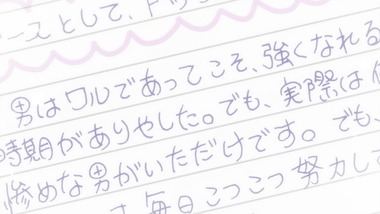 ースとして、ドッ
男はワルであってこそ、強くなれる
時期がありやした。でも、実際は
惨めな男がいただけです。でも、
毎日こつこつ努力して